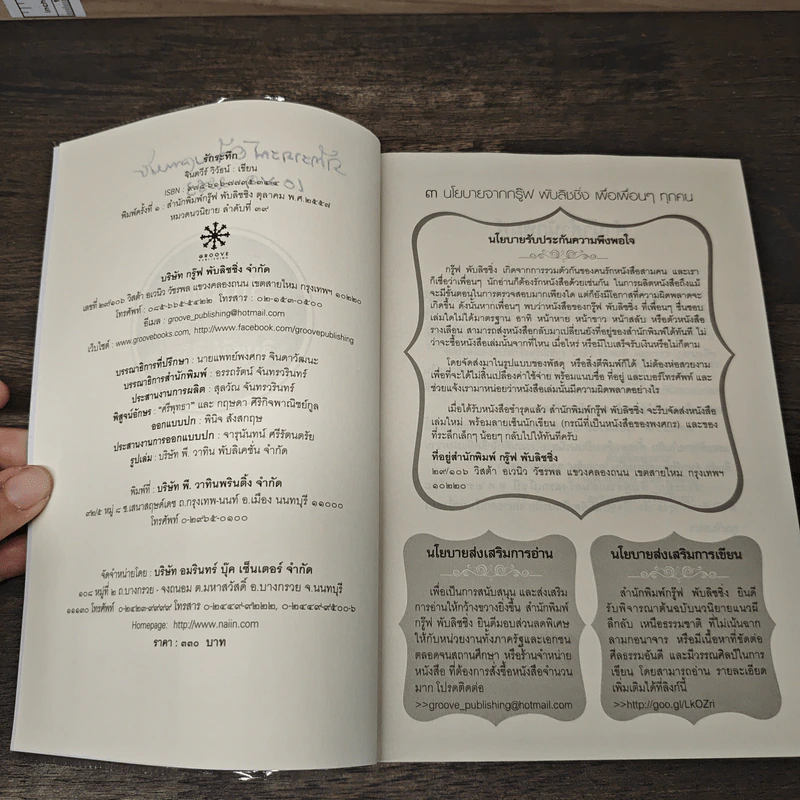 รักระทึก
จินตวีร์ วิวัธน์ : เขียน
ISBN :
พิมพ์ครั้งที่ ๑ : สำนักพิมพ์กรู๊ฟ พับลิชชิ่ง ตุลาคม พ.ศ.๒๕๕๗
หมวดนวนิยาย ลำดับที่ ๓๙
GROOVE
PUBLISHING
บริษัท กรู๊ฟ พับลิชชิ่ง จำกัด
เลขที่ ๒๙/๑๐๖ วิสต้า อเวนิว วัชรพล แขวงคลองถนน เขตสายไหม กรุงเทพฯ ๑๐๒๒๐
โทรศัพท์ : ๐๘๕๖๖๕๕๔๒๒ โทรสาร : ๐๒-๑๕๓-๐๕๐๐
อีเมล : groove_publishing@hotmail.com
เว็บไซต์ : www.groovebooks.com, http://www.facebook.com/groovepublishing
บรรณาธิการที่ปรึกษา : นายแพทย์พงศกร จินดาวัฒนะ
บรรณาธิการสำนักพิมพ์ : อรรถรัตน์ จันทรวรินทร์
ประสานงานการผลิต : สุลวัณ จันทรวรินทร์
พิสูจน์อักษร : "ศรีพุทธา" และ กฤษดา ศิริกิจพาณิชย์กูล
ออกแบบปก : พินิจ สังสกฤษ
ประสานงานการออกแบบปก : จารุนันทน์ ศรีรัตนตรัย
รูปเล่ม : บริษัท พี. วาทิน พับลิเคชั่น จำกัด
พิมพ์ที่ : บริษัท พี. วาทินพรินติ้ง จำกัด
๙๒/๕ หมู่ ๘ ซ.เสนาสฤษด์เดช ถ.กรุงเทพ-นนท์ อ.เมือง นนทบุรี ๑๑๐๐๐
โทรศัพท์ ๐-๒๙๖๕-๐๑๐๐
จัดจำหน่ายโดย : บริษัท อมรินทร์ บุ๊ค เซ็นเตอร์ จำกัด
๑๐๘ หมู่ที่ ๒ ถ.บางกรวย - จงถนอม ต.มหาสวัสดิ์ อ.บางกรวย จ.นนทบุรี
๑๑๑๓๐ โทรศัพท์ ๐-๒๔๒๓-๙๙๙๙ โทรสาร ๐-๒๔๔๙-๙๒๒๒, ๐-๒๔๔๙-๙๕๐๐-๖
Homepage: http://www.naiin.com
ราคา : ๓๓๐ บาท
๓ นโยบายจากกรู๊ฟ พับลิชชิ่ง เพื่อเพื่อนๆ ทุกคน
นโยบายรับประกันความพึงพอใจ
กรู๊ฟ พับลิชชิ่ง เกิดจากการรวมตัวกันของคนรักหนังสือสามคน และเรา
ก็เชื่อว่าเพื่อนๆ นักอ่านก็ต้องรักหนังสือด้วยเช่นกัน ในการผลิตหนังสือถึงแม้
จะมีขั้นตอนในการตรวจสอบมากเพียงใด แต่ก็ยังมีโอกาสที่ความผิดพลาดจะ
เกิดขึ้น ดังนั้นหากเพื่อนๆ พบว่าหนังสือของกรู๊ฟ พับลิชชิ่ง ที่เพื่อนๆ ชื่นชอบ
เล่มใดไม่ได้มาตรฐาน อาทิ หน้าหาย หน้าขาว หน้าสลับ หรือตัวหนังสือ
รางเลือน สามารถส่งหนังสือกลับมาเปลี่ยนยังที่อยู่ของสำนักพิมพ์ได้ทันที ไม่
ว่าจะซื้อหนังสือเล่มนั้นจากที่ไหน เมื่อไหร่ หรือมีใบเสร็จรับเงินหรือไม่ก็ตาม
โดยจัดส่งมาในรูปแบบของพัสดุ หรือสิ่งตีพิมพ์ก็ได้ ไม่ต้องห่อสวยงาม
เพื่อที่จะได้ไม่สิ้นเปลืองค่าใช้จ่าย พร้อมแนบชื่อ ที่อยู่ และเบอร์โทรศัพท์ และ
ช่วยแจ้งเรามาหน่อยว่าหนังสือเล่มนั้นมีความผิดพลาดอย่างไร
เมื่อได้รับหนังสือชำรุดแล้ว สำนักพิมพ์กรู๊ฟ พับลิชชิ่ง จะรีบจัดส่งหนังสือ
เล่มใหม่ พร้อมลายเซ็นนักเขียน (กรณีที่เป็นหนังสือของพงศกร) และของ
ที่ระลึกเล็กๆ น้อยๆ กลับไปให้ทันทีครับ
ที่อยู่สำนักพิมพ์ กรู๊ฟ พับลิชชิ่ง
๒๙/๑๐๖ วิสต้า อเวนิว วัชรพล แขวงคลองถนน เขตสายไหม กรุงเทพฯ
๑๐๒๒๐
นโยบายส่งเสริมการอ่าน
เพื่อเป็นการสนับสนุน และส่งเสริม
การอ่านให้กว้างขวางยิ่งขึ้น สำนักพิมพ์
กรู๊ฟ พับลิชชิ่ง ยินดีมอบส่วนลดพิเศษ
ให้กับหน่วยงานทั้งภาครัฐและเอกชน
ตลอดจนสถานศึกษา หรือร้านจำหน่าย
หนังสือ ที่ต้องการสั่งซื้อหนังสือจำนวน
มาก โปรดติดต่อ
>>groove_publishing@hotmail.com
นโยบายส่งเสริมการเขียน
สำนักพิมพ์กรู๊ฟ พับลิชชิ่ง ยินดี
รับพิจารณาต้นฉบับนวนิยายแนวมี
ลึกลับ เหนือธรรมชาติ ที่ไม่เน้นฉาก
ลามกอนาจาร หรือมีเนื้อหาที่ขัดต่อ
ศีลธรรมอันดี และมีวรรณศิลป์ในการ
เขียน โดยสามารถอ่าน รายละเอียด
เพิ่มเติมได้ที่ลิงก์นี้
>>http://goo.gl/LkOZri